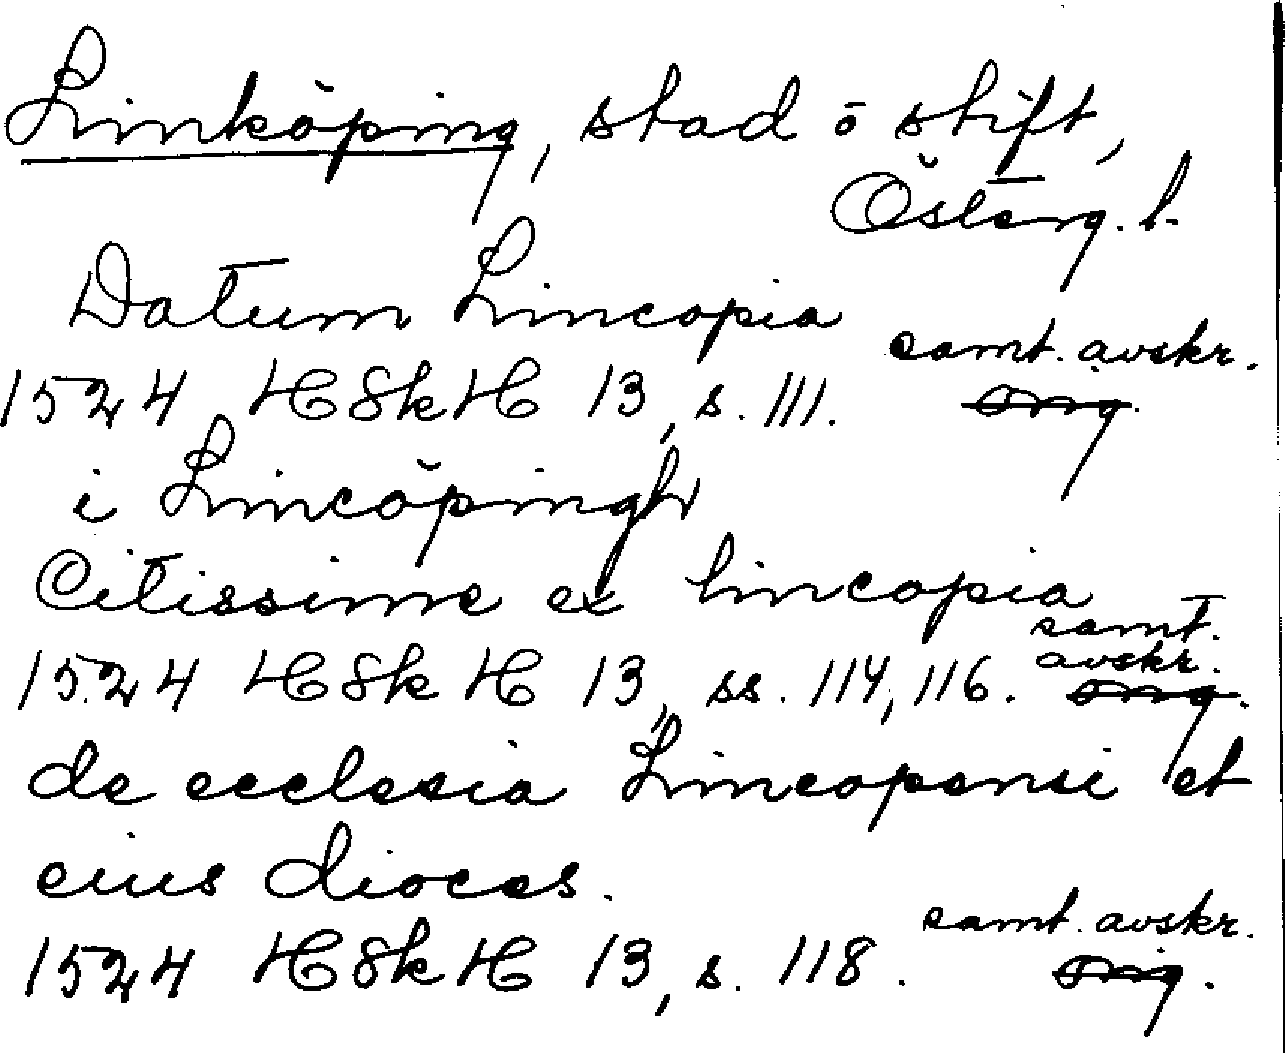 Linköping, stad o stift,
Österg. l.
Datum Lincopia
samt. avskr.
1524 HSkH 13, s. 111. orig.
i Lincöpingh
Citissime ex lincopia
samt.
avskr.
1524 HSkH 13, ss. 114, 116. orig.
de ecclesia Lincopensi et
eius dioces.
samt. avskr.
1524 HSkH 13, s. 118. orig.